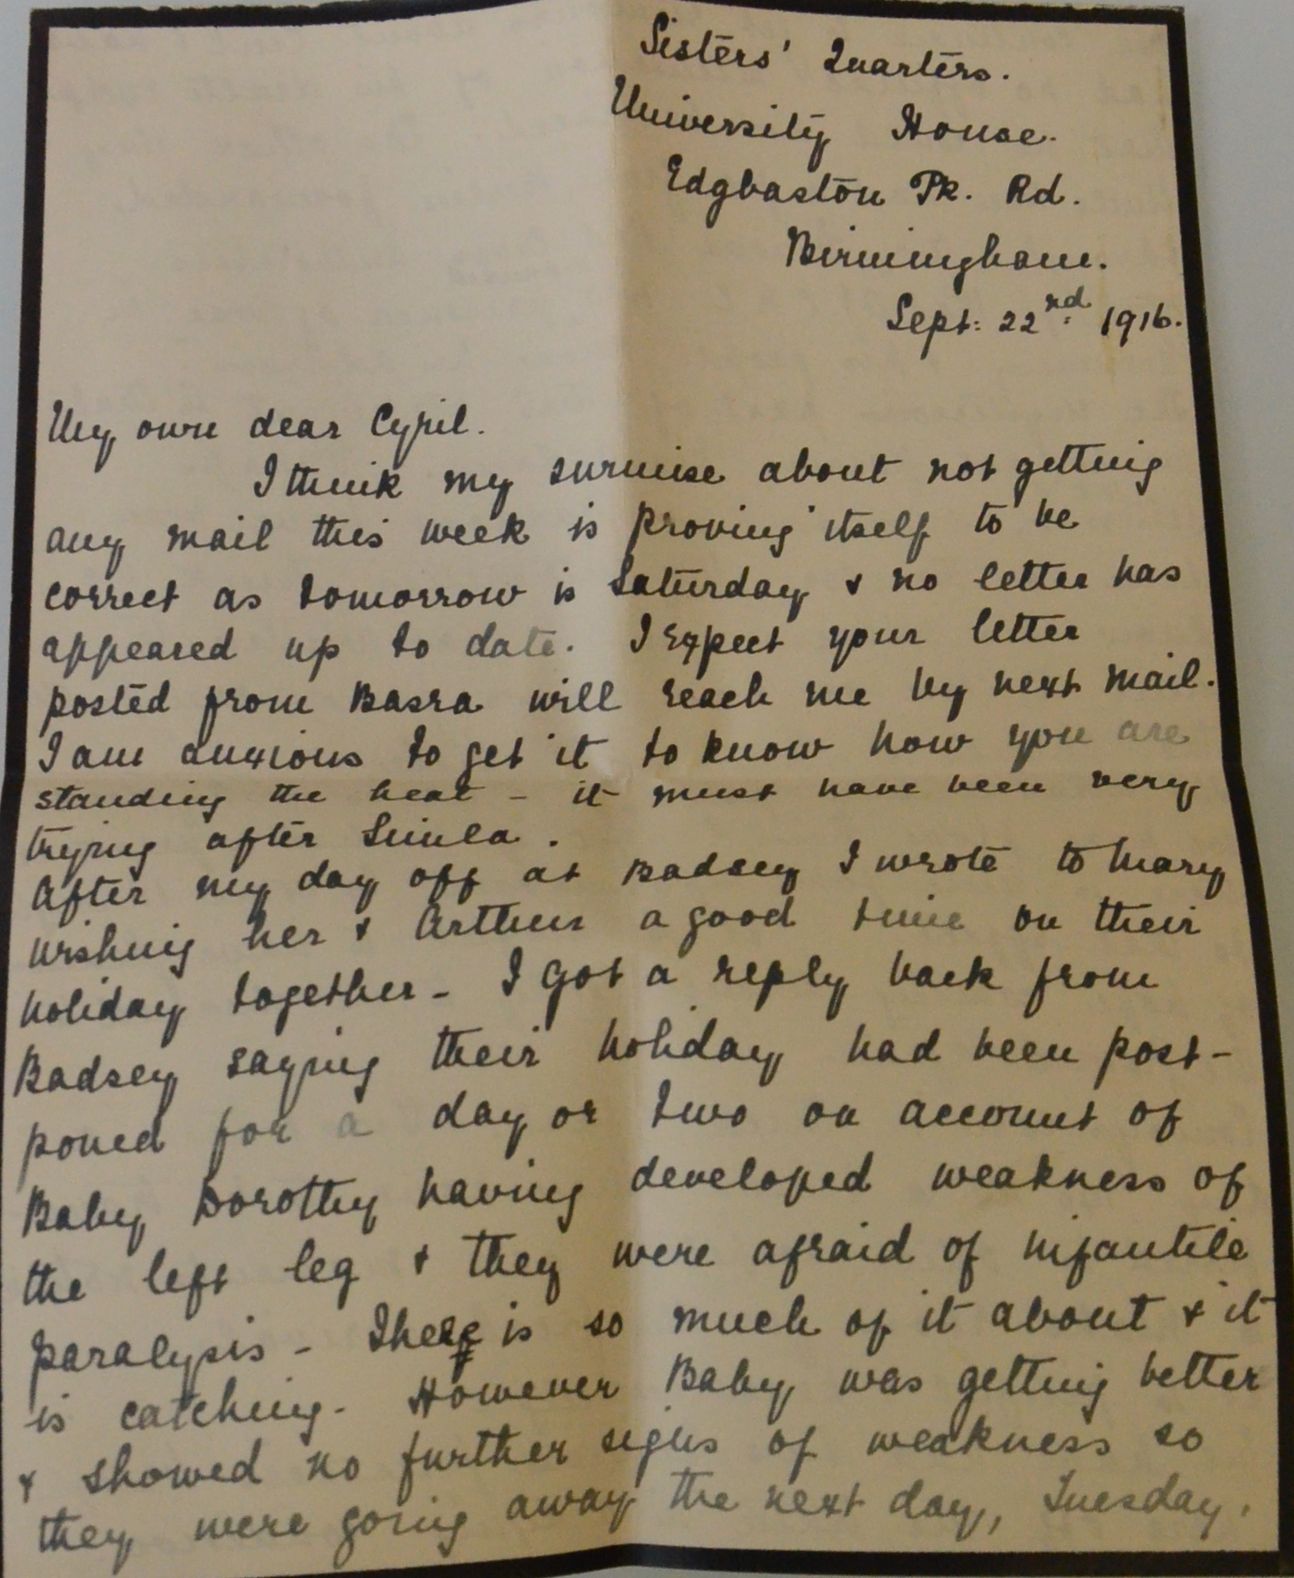 Sisters' Quarters.
University House.
Edgbaston Pk. Rd.
Birmingham.
Sept: 22nd. 1916.
My own dear Cyril.
I think my surmise about not getting
any mail this week is proving itself to be
correct as tomorrow is Saturday & no letter has
appeared up to date. I expect your letter
posted from Basra will reach me by next mail.
I am anxious to get it to know how you are
standing the heat - it must have been very
trying after Simla.
After my day off at Badsey I wrote to Mary
wishing her & Arthur a good time on their
holiday together - I got a reply back from
Badsey saying their holiday had been post-
poned for a day or two on account of
Baby Dorothy having developed weakness of
the left leg & they were afraid of infantile
paralysis - There is so much of it about & it
is catching. However Baby was getting better
& showed no further signs of weakness so
they were going away the next day, Tuesday.